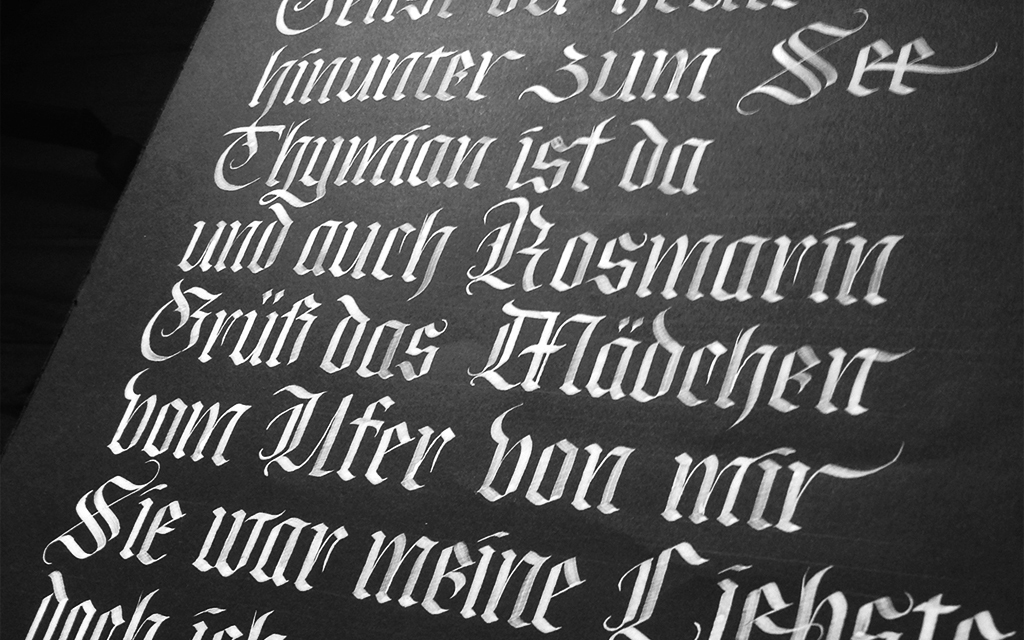 hinunter zum See
Thymian ist da
und auch Rosmarin
Grüß das Mädchen
vom Ufer von mir
Sie war meine Liebste
doch ich